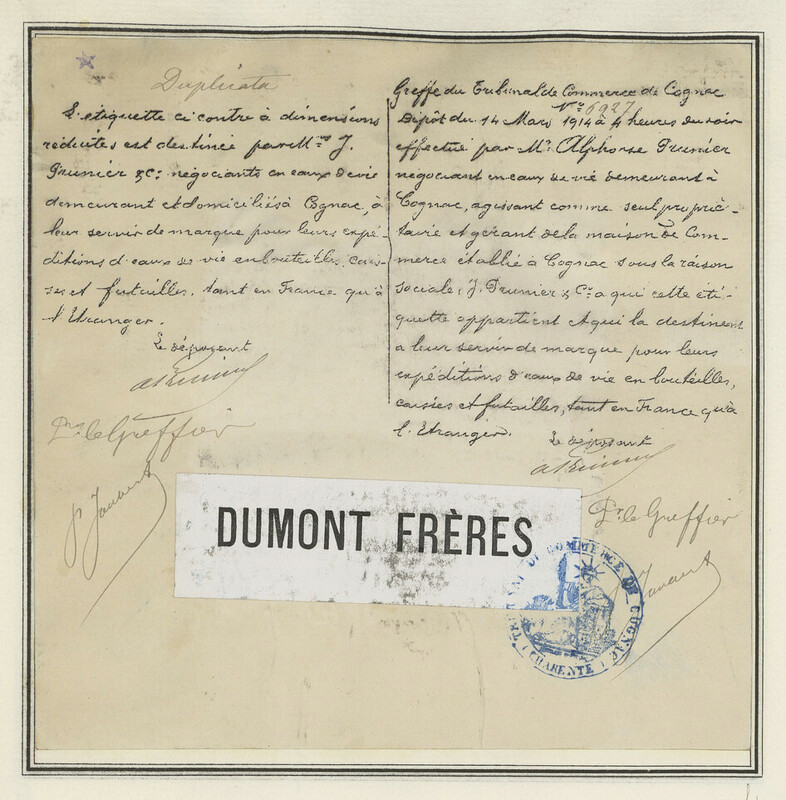 Duplicata
L'étiquette ci contre à dimensions
réduites est destinée par MMrs J.
Prunier & Cie négociants en eaux de vie
demeurant et domiciliés à Cognac, à
leur servir de marque pour leurs expé-
ditions d'eaux de vie en bouteilles, cais-
ses et futailles, tant en France qu'à
l'Etranger.
Le déposant
APrunier
Pr le Greffier
Greffe du Tribunal de Commerce de Cognac
No 6927
Dépôt du 14 Mars 1914 à 4 heures du soir
effectué par Mr Alphonse Prunier
négociant en eaux de vie demeurant à
Cognac, agissant comme seul proprié-
taire et gérant de la maison de Com-
merce établie à Cognac sous la raison
sociale, J. Prunier & Cie a qui cette éti-
quette appartient et qui la destinent
a leur servir de marque pour leurs
expéditions d'eaux de vie en bouteilles,
caisses et futailles, tant en France qu'à
l'Etranger.
Le déposant
APrunier
Pr le Greffier
DUMONT FRÈRES
TRIBUNAL DE COMMERCE DE COGNAC
(CHARENTE)